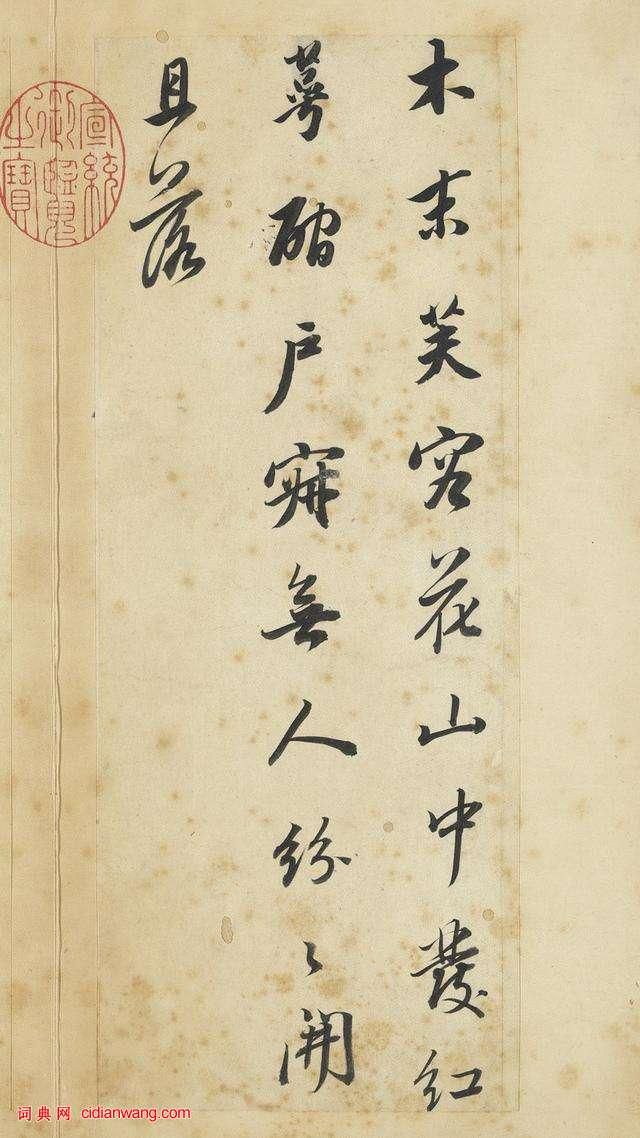 木末芙容花山中發紅
萼磵户寂無人紛〻開
且落
宣統
御覽
之寶
词典网 cidianwang.com